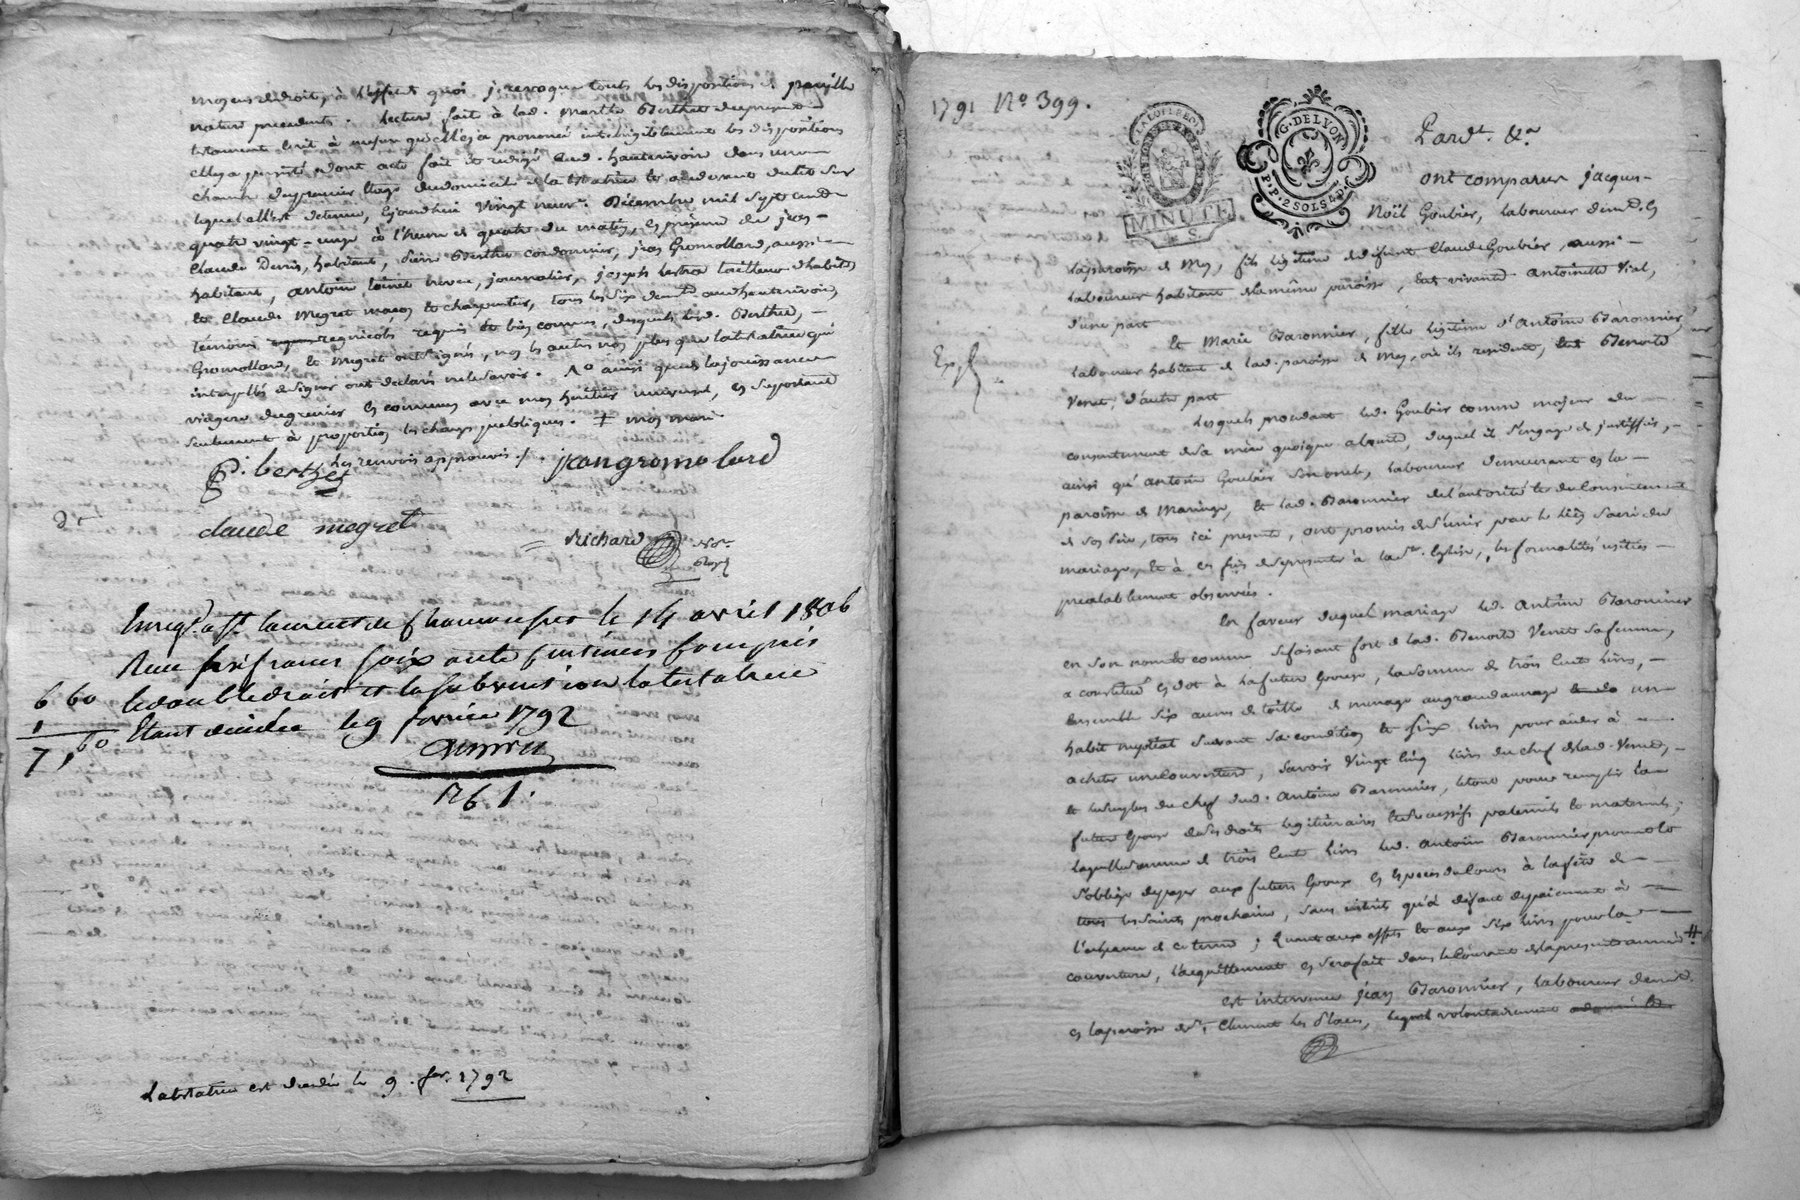 moyens de droit, à l'effet de quoi je revoque toutes les dispositions de pareille
nature precedentes. Lecture fait à lad. Marthe Berthet du present
testament écrit à mesure qu'elle a prononcé intelligiblement les dispositions
elle y a persisté dont acte fait et redigé aud. hauterivoire dans une
chambre du premier étage du domicile de la testatrice et au devant du lit sur
lequel elle est detenue, cejourd'hui vingt neuf Décembre mil sept cent
quatre vingt-onze à l'heure de quatre du matin, en présence de jean
Claude Denis, habitant, Pierre Berthet cordonnier, jean Gromollard, aussi
habitant, antoine journalier, joseph tailleur d'habits
et Claude Megret maçon et charpentier, tous les six demt. aud. hauterivoire,
témoins regnicoles requis et bien connus, desquels led. Berthet,
Gromollard, et Megret ont signé, non les autres non plus que la testatrice qui
interpellés de signer ont declaré ne le savoir.
viagere du grenier en commun avec mon heritier universel, en supportant
seulement à proportion les charges publiques. + mon mari
Les renvois approuvés ./.
P. berthet jean gromolard
claude megret
Richard
Enregt. à St. laurent de Chamousset le 14 avril 1806
Reçu six francs soixante centimes compris
le double droit et la subvention la testatrice
étant décédée le 9 fevrier 1792
6, 60
7, 60
261.
La testatrice est décédée le 9. fer. 1792
1791 No. 399.
LA LOI LE ROI
MINUTE
4 S.
G. DE LYON
P. P. 2 SOLS 8 D.
Pardt. &a.
ont comparu jacques
Noël Goubier, laboureur demt. en
la paroisse de Mey, fils légitime de défunt Claude Goubier, aussi
laboureur habitant de la même paroisse, et de vivante Antoinette Vial,
d'une part
Et Marie Baronnier, fille légitime d'Antoine Baronnier
laboureur habitant de lad. paroisse de Mey, où ils resident, et de Benoite
Venet, d'autre part
Exp.
Lesquels procedant led. Goubier comme majeur du
consentement de sa mère quoique absente, duquel il s'engage de justiffier,
ainsi qu'antoine Goubier son oncle, laboureur demeurant en la
paroisse de Maringe, et lad. Baronnier de l'autorité et du consentement
de son père, tous ici presents, ont promis de s'unir par le lien sacré du
mariage, et à ces fins de se presenter à la Ste. Eglise, les formalités usitées
préalablement observées.
En faveur duquel mariage led. Antoine Baronnier
en son nom et comme se faisant fort de lad. Benoite Venet sa femme,
a constitué en dot à la future épouse, la somme de trois cents livres,
ensemble six aunes de toille de menage au grand aunage un
habit nuptial suivant sa condition et six livres pour aider à
acheter une couverture, savoir vingt cinq livres du chef de lad. Venet,
et le surplus du chef dud. Antoine Baronnier, letout pour remplir la
future épouse de ses droits légitimaires et successifs paternels et maternels;
laquelle somme de trois cents livres led. Antoine Baronnier promet et
s'oblige de payer aux futurs époux en especes de cours à la fête de
tous les saints prochaine, sans interêts qu'à défaut de paiement à
l'echeance de ce terme; quant aux effets et aux six livres pour la
couverture, l'acquittement en sera fait dans le courant de la presente année #
Est intervenu jean Baronnier, laboureur demt.
en la paroisse de St. Clement les Places, lequel volontairement